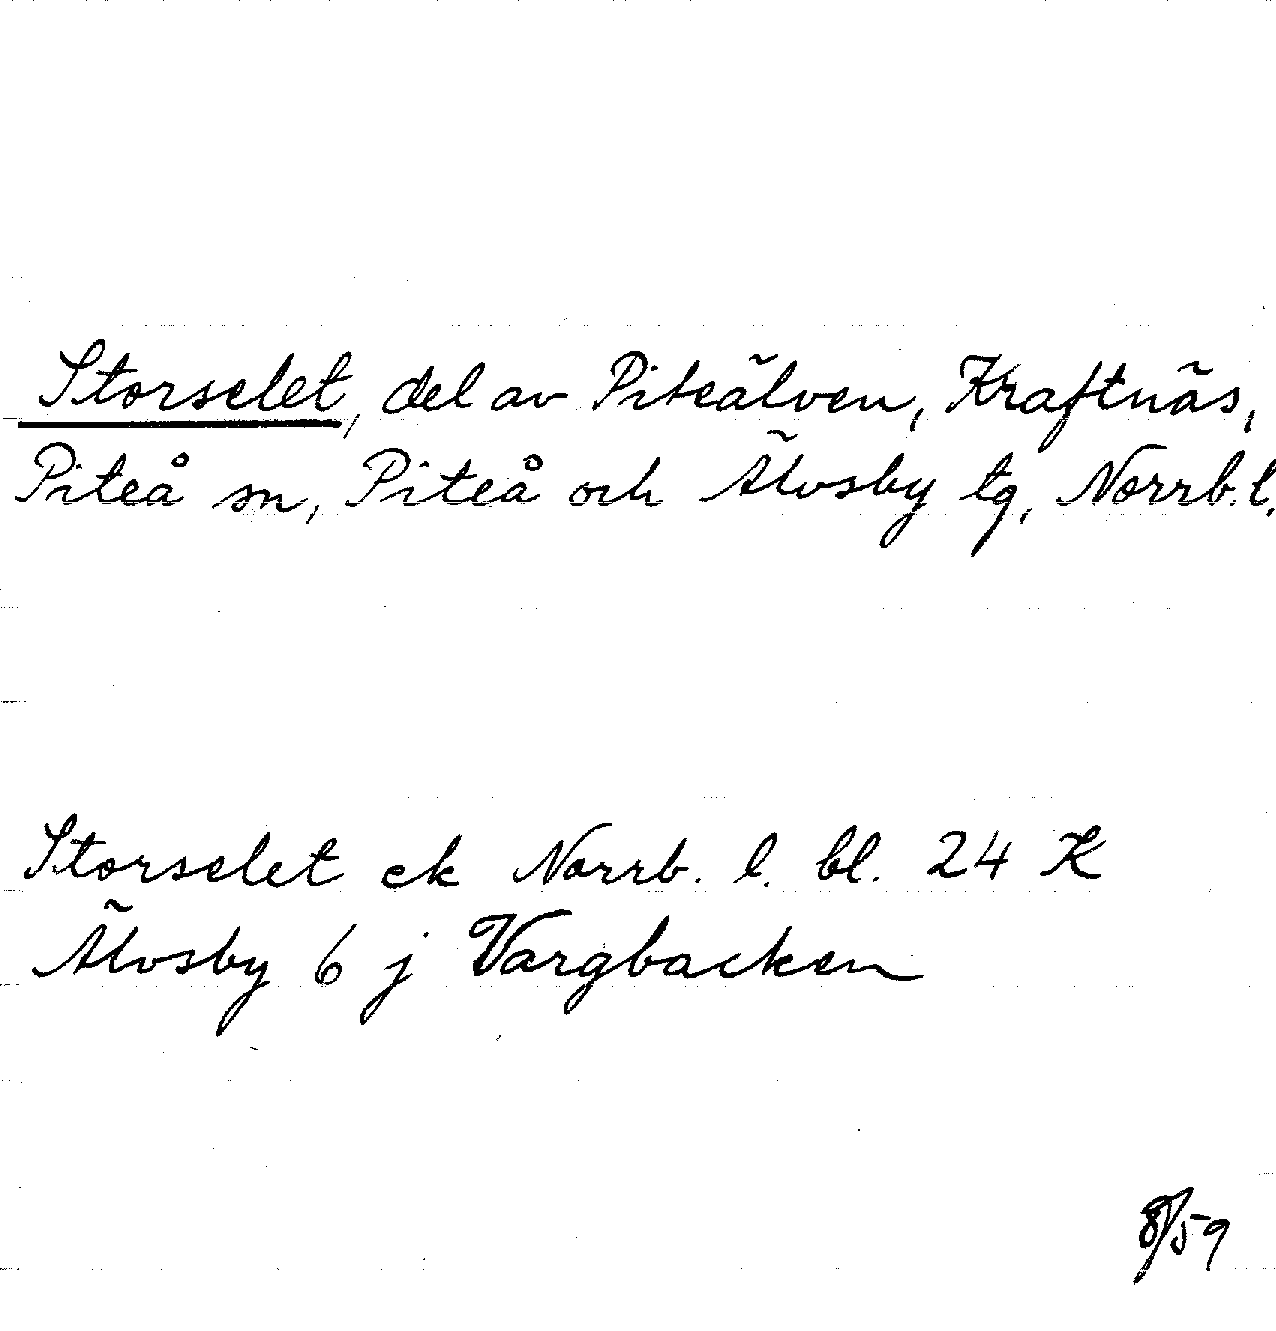 Storselet, del av Piteälven, Kraftnäs,
Piteå sn, Piteå och Älvsby tg, Norrb. l.
Storselet ek Norrb. l. bl. 24 K
Älvsby 6 j Vargbacken
8/59